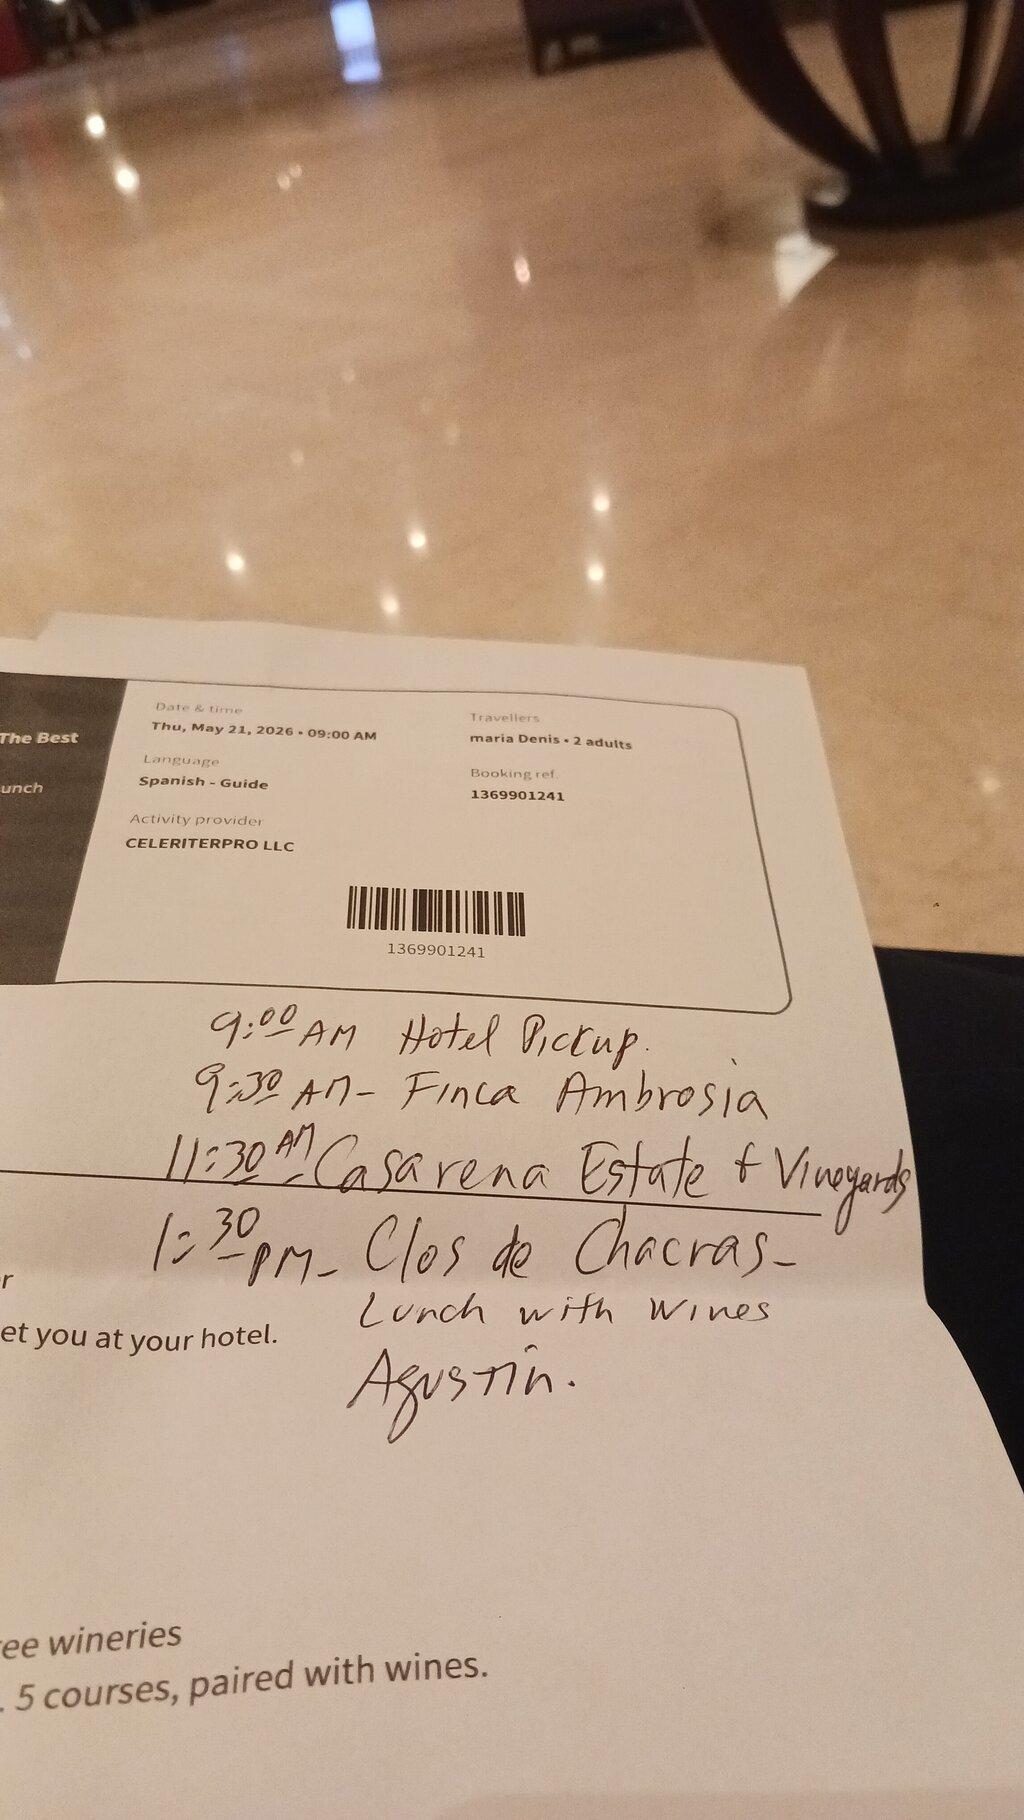 The Best
unch
Date & time
Thu, May 21, 2026 • 09:00 AM
Language
Spanish - Guide
Activity provider
CELERITERPRO LLC
Travellers
maria Denis • 2 adults
Booking ref.
1369901241
1369901241
9:00 AM Hotel Pickup.
9:30 AM- Finca Ambrosia
11:30 AM - Casarena Estate & Vineyards
1:30 PM- Clos de Chacras-
Lunch with wines
Agustin.
r
et you at your hotel.
ee wineries
. 5 courses, paired with wines.